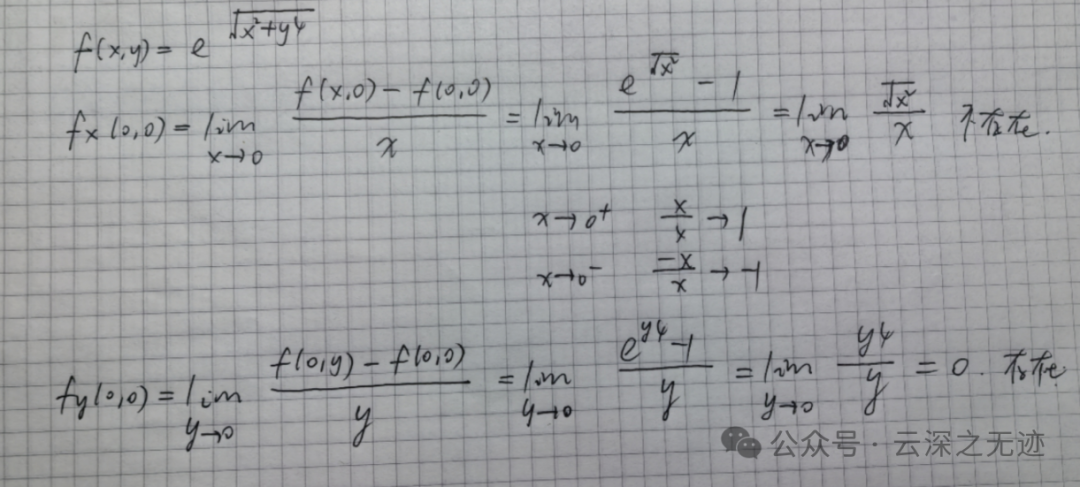 f(x,y) = e^{√(x²+y⁴)}
fx(0,0) = lim_{x→0} (f(x,0) − f(0,0))/x = lim_{x→0} (e^{√x²} − 1)/x = lim_{x→0} √x²/x 不存在.
x→0⁺ x/x → 1
x→0⁻ −x/x → −1
fy(0,0) = lim_{y→0} (f(0,y) − f(0,0))/y = lim_{y→0} (e^{y⁴} − 1)/y = lim_{y→0} y⁴/y = 0. 存在
公众号 · 云深之无迹